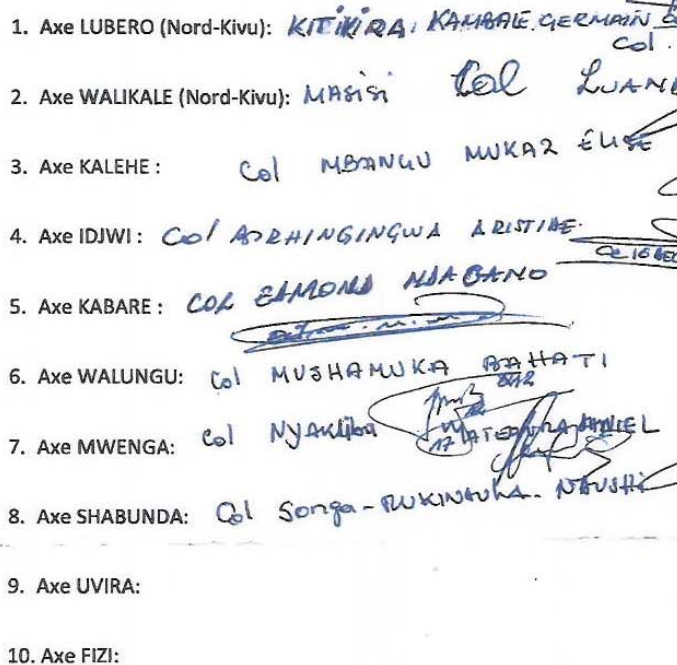 1. Axe LUBERO (Nord-Kivu): KITIKIRA, KAMBALE GERMAIN
Col.
2. Axe WALIKALE (Nord-Kivu): MASISI Col
3. Axe KALEHE : Col MBANGU MUKAZ ELISE
4. Axe IDJWI : Col ARISTIDE
5. Axe KABARE : COL EDMOND
6. Axe WALUNGU: Col MUSHAMUKA BAHATI
7. Axe MWENGA: Col DANIEL
8. Axe SHABUNDA: Col Songa-
9. Axe UVIRA:
10. Axe FIZI: